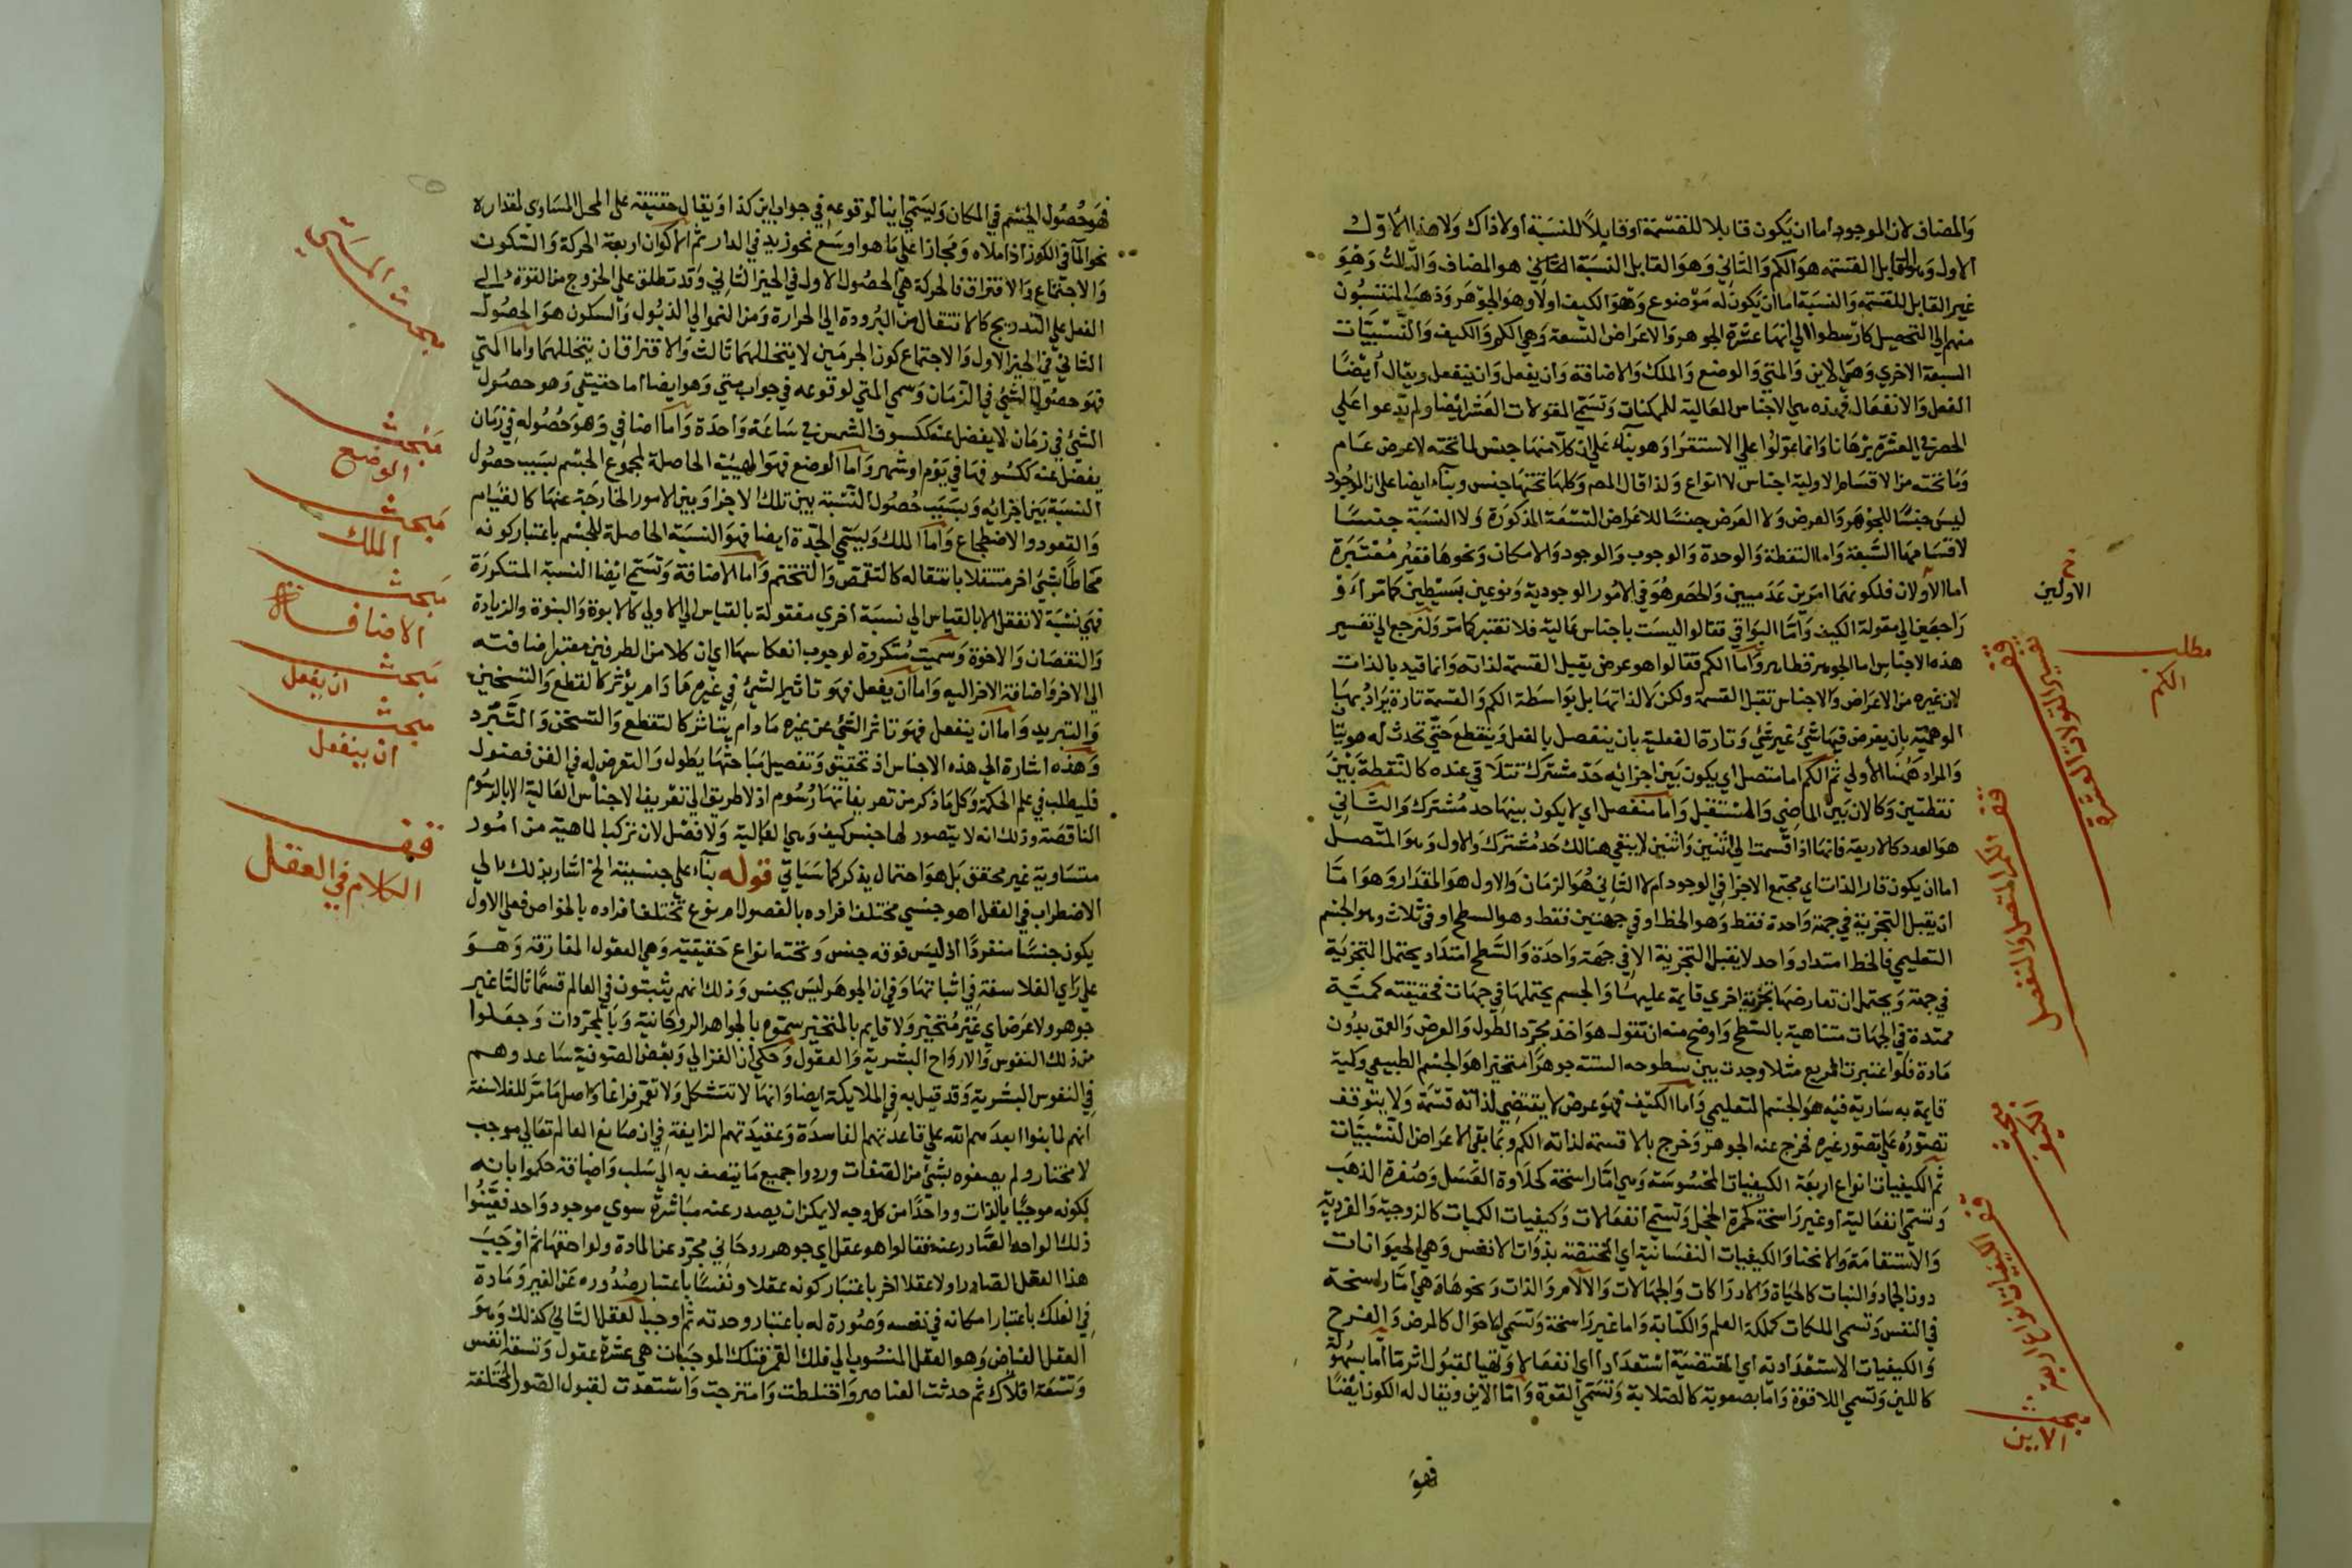 والمضاف لان الموجود اما ان يكون قابلا للقسمة او قابلا للنسبة او لا ذاك ولا هذا الاول
الاول وهو القابل القسمة هو الكم والثاني وهو القابل النسبة الثاني هو المضاف والثالث وهو
غير القابل للقسمة والنسبة اما ان يكون له موضوع وهو الكيف اولا وهو الجوهر وذهب المنتسبون
منهم الي التحصيل كارسطوا الي انها عشرة الجوهر والاعراض التسعة وهي الكم والكيف والنسبيات
السبعة الاخري وهي الاين والمتي والوضع والملك والاضافة وان يفعل وان ينفعل ويقال أيضا
الفعل والانفعال فهذه هي الاجناس العالية للممكنات وتسمي المقولات العشر ايضا ولم يدعوا علي
الحصر في العشرة برهانا وانما عولوا علي الاستقرا وهو بناء علي ان كلا منها جنس لما تحته لا عرض عام
وما تحته من الاقسام الاولية اجناس لا انواع ولذا قال المص وكلها تحتها جنس وبناء ايضا علي ان الموجود
ليس جنسا للجوهر والعرض ولا العرض جنسا للاعراض التسعة المذكورة ولا النسبة جنسا
لاقسامها السبعة واما النقطة والوحدة والوجوب والوجود والامكان ونحوها فغير معتبرة
اما الاولان فلكونهما امرين عدميين والحصر هو في الامور الوجودية ونوعين بسيطين كما مر او
راجعين الي مقولة الكيف واما البواقي فقالوا ليست باجناس عالية فلا تعتبر كما مر ولنرجع الي تفسير
هذه الاجناس اما الجوهر فظاهر واما الكم فقالوا هو عرض يقبل القسمة لذاته وانما قيد بالذات
لان غيره من الاعراض والاجناس تقبل القسمة ولكن لا لذاتها بل بواسطة الكم والقسمة تارة يراد بها
الوهمية بان يفرض فيها شئ غير شئ وتارة الفعلية بان ينفصل بالفعل وينقطع حتي تحدث له هويتا
والمراد ههنا الأولي ثم الكم اما متصل اي يكون بين اجزائه حد مشترك تتلاقي عنده كالنقطة بين
نقطتين وكالان بين الماضي والمستقبل واما منفصل اي لا يكون بينها حد مشترك والثاني
هو العدد كالاربعة فانها اذا قسمت الي اثنين واثنين لا يبقي هنالك حد مشترك والاول وهو المتصل
اما ان يكون قار الذات اي مجتمع الاجزا في الوجود ام لا الثاني هو الزمان والاول هو المقدار وهو اما
ان يقبل التجزية في جهة واحدة فقط وهو الخط او في جهتين فقط وهو السطح او في ثلاث وهو الجسم
التعليمي فالخط امتداد واحد لا يقبل التجزية الا في جهة واحدة والسطح امتداد يحتمل التجزية
في جهة ويحتمل ان تعارضها تجزية اخري قايمة عليها والجسم يحتملها في جهات فحقيقته كمية
ممتدة في الجهات متناهية بالسطح واوضح منه ان تقول هو اخذ مجرد الطول والعرض والعمق بدون
مادة فلو اعتبرت المربع مثلا وجدت بين سطوحه الستة جوهرا متحيزا هو الجسم الطبيعي وكمية
قايمة به سارية فيه هو الجسم التعليمي واما الكيف فهو عرض لا يقتضي لذاته قسمة ولا يتوقف
تصوره علي تصور غيره فخرج عنه الجوهر وخرج بلا قسمة لذاته الكم وبما بقي الاعراض النسبيات
ثم الكيفيات انواع اربعة الكيفيات المحسوسة وهي اما راسخة كحلاوة العسل وصفرة الذهب
وتسمي انفعالية او غير راسخة كحمرة الخجل وتسمي انفعالات وكيفيات الكميات كالزوجية والفردية
والاستقامة والانحنا والكيفيات النفسانية اي المختصة بذوات الانفس وهي الحيوانات
دون الجماد والنبات كالحياة والادراكات والجهالات والآلام والذات ونحوها وهي اما راسخة
في النفس وتسمي الملكات كملكة العلم والكتابة واما غير راسخة وتسمي الاحوال كالمرض والفرح
والكيفيات الاستعدادية اي المقتضية استعدادا اي انفعالا وتهيا لقبول اثر ما اما بسهولة
كاللين وتسمي اللاقوة واما بصعوبة كالصلابة وتسمي القوة واما الاين ويقال له الكون ايضا
فهو
الاولين
مطلب
الكم
قف تفسير المقولات العشرة
قف الكم المتصل والمنفصل
مبحث
الكيف
قف الكيفيات انواع اربعة
مبحث
الاين
فهو حصول الجسم في المكان ويسمي أينا لوقوعه في جواب اين كذا ويقال حقيقة علي المحل المساوي لمقداره
نحو الماء في الكوز اذا ملاه ومجازا علي ما هو اوسع نحو زيد في الدار ثم الاكوان اربعة الحركة والسكون
والاجتماع والافتراق فالحركة هي الحصول الاول في الحيز الثاني وقد تطلق علي الخروج من القوة الي
الفعل علي التدريج كالانتقال من البرودة الي الحرارة ومن النمو الي الذبول والسكون هو الحصول
الثاني في الحيز الاول والاجتماع كون الجرمين لا يتخللهما ثالث والافتراق ان يتخللهما واما المتي
فهو حصول الشئ في الزمان وسمي المتي لوقوعه في جواب متي وهو ايضا اما حقيقي وهو حصول
الشئ في زمان لا يفضل عنه ككسوف الشمس في ساعة واحدة واما اضافي وهو حصوله في زمان
يفضل عنه ككسوفها في يوم او شهر واما الوضع فهو الهيئة الحاصلة لمجموع الجسم بسبب حصول
النسبة بين اجزائه وبسبب حصول النسبة بين تلك الاجزا وبين الامور الخارجة عنها كالقيام
والقعود والاضطجاع واما الملك ويسمي الجدة ايضا فهو النسبة الحاصلة للجسم باعتبار كونه
محاطا بشئ اخر منتقلا بانتقاله كالتقمص والتختم واما الاضافة وتسمي ايضا النسبة المتكررة
فهي نسبة لا تعقل الا بالقياس الي نسبة اخري معقولة بالقياس الي الاولي كالابوة والبنوة والزيادة
والنقصان والاخوة وسميت متكررة لوجوب انعكاسها اي ان كلا من الطرفين معتبر اضافته
الي الاخر واضافة الاخر اليه واما ان يفعل فهو تاثير الشئ في غيره ما دام يؤثر كالقطع والتسخين
والتبريد واما ان ينفعل فهو تاثر الشئ عن غيره ما دام يتاثر كالتقطع والتسخن والتبرد
وهذه اشارة الي هذه الاجناس اذ تحقيق وتفصيل مباحثها يطول والتعرض له في الفن فضول
فليطلب في علم الحكمة وكل ما ذكر من تعريفاتها رسوم اذ لا طريق الي تعريف الاجناس العالية الا بالرسوم
الناقصة وذلك انه لا يتصور لها جنس كيف وهي العالية ولا فصل لان تركب الماهية من امور
متساوية غير محقق بل هو احتمال يذكر كما سياتي قوله بناء علي جنسيته الخ اشار بذلك الي
الاضطراب في العقل اهو جنسي مختلف افراده بالفصول ام نوع تختلف افراده بالخواص فعلي الاول
يكون جنسا منفردا اذ ليس فوقه جنس وتحته انواع حقيقية وهي العقول المفارقة وهو
علي راي الفلاسفة في اثباتها وفي ان الجوهر ليس بجنس وذلك انهم يثبتون في العالم قسما ثالثا غير
جوهر ولا عرض اي غير متحيز ولا قايم بالمتحيز سموه بالجواهر الروحانية وبالمجردات وجعلوا
من ذلك النفوس والارواح البشرية والعقول وحكي ان الغزالي وبعض الصوفية ساعدوهم
في النفوس البشرية وقد قيل به في الملايكة ايضا وانها لا تتشكل ولا تعمر فراغا واصل ما مر للفلاسفة
انهم لما بنوا ابعدهم الله علي قاعدتهم الفاسدة وعقيدتهم الزايفة في ان صانع العالم تعالي موجب
لا مختار ولم يصفوه بشئ من الصفات وردوا جميع ما يتصف به الي سلب واضافة حكموا بانه
لكونه موجبا بالذات وواحدا من كل وجه لا يمكن ان يصدر عنه مباشرة سوي موجود واحد فعينوا
ذلك الواحد الصادر عنه فقالوا هو عقل اي جوهر روحاني مجرد عن المادة ولواحقها ثم اوجب
هذا العقل الصادر اولا عقلا اخر باعتبار كونه عقلا ونفسا باعتبار صدوره عن الغير ومادة
في الفلك باعتبار امكانه في نفسه وصورة له باعتبار وحدته ثم اوجب العقل الثاني كذلك وهو
العقل الفياض وهو العقل المنسوب الي فلك القمر فتلك الموجبات هي عشرة عقول وتسعة انفس
وتسعة افلاك ثم حدثت العناصر واختلطت وامتزجت واستعدت لقبول الصور المختلفة
مبحث المتي
مبحث
الوضع
مبحث
الملك
مبحث
الاضافة
مبحث
ان يفعل
مبحث
ان ينفعل
قف
الكلام في العقل